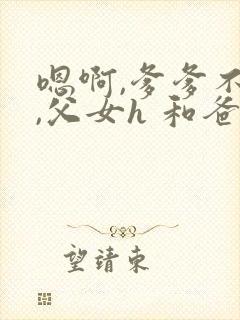 嗯啊,爹爹不
,父女h 和爸
望靖東